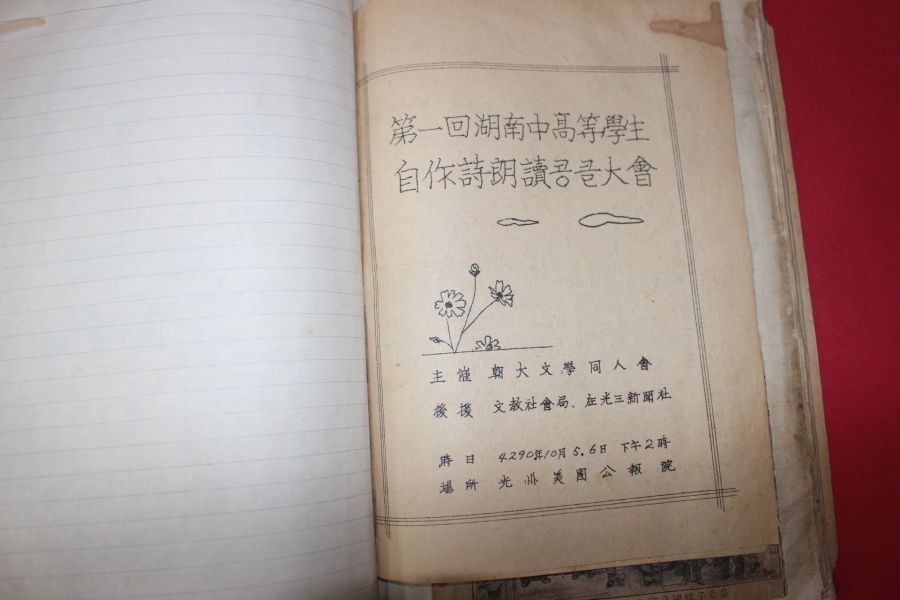 第一回湖南中高等學生
自作詩朗讀콩쿨大會
主催 朝大文學同人會
後援 文敎社會局. 在光三新聞社
時日 4290年10月5.6日 下午2時
場所 光州美國公報院